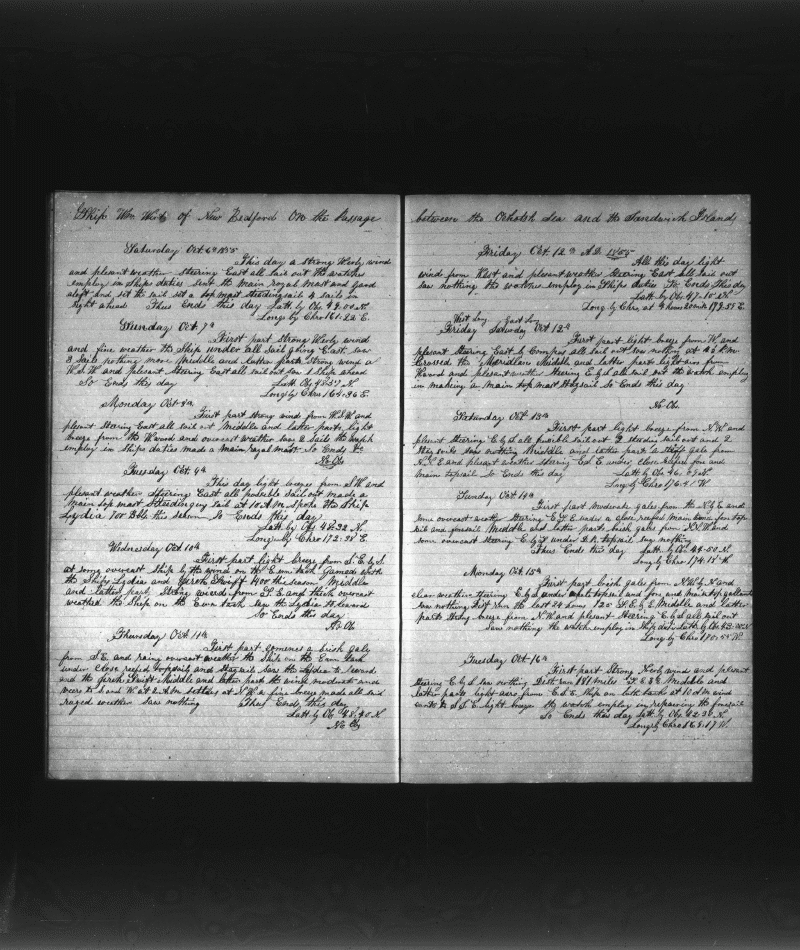 Ship Wm Wirt of New Bedford On the Passage
Saturday Oct 6th 1855
This day a strong Werly wind
and plesent weather steering East all sail out the watches
employ in Ships duties sent the main royal mast and yard
aloft and set the sail set a top mast steadingsail 4 sails in
sight ahead Thus Ends this day Latt. by Ob. 49.00 N.
Longi by Chro 161.22 E.
Sunday Oct 7th
First part Strong Werly wind
and fine weather the Ship under all Sail going East saw
3 Sails nothing more Middle and latter parts Strong wind
W.b.W. and plesent Steering East all sail out saw 1 Ship ahead
So Ends this day Latt. by Ob. N.
Longi by Chro 164.36 E.
Monday Oct 8th
First part strong wind from W.b.W and
plesent Steering East all sail out Middle and latter parts light
breeze from the W.ward and overcast weather saw 2 Sails the watch
employ in Ships duties made a main royal mast So Ends &c
No Obs
Tuesday Oct 9th
This day light breezes from S.W. and
plesent weather Steering East all posible Sail out made a
Main top mast Steadingsail at 10 A.M. Spoke the Ship
Lydia 700 Bbls this season So Ends this day
Latt. by Ob. 48.32 N.
Longi by Chro 172.31 E.
Wednesday Oct 10th
First part light breeze from S.E. by S.
at some overcast Ship by the wind on the E.ern tack Gamed with
the Ships Lydia and Jireh Swift 400 this season Middle
and latter parts Strong wind from S.E. and thick overcast
weather the Ship on the E.ern tack Saw the Lydia to leward
So Ends this day
No Ob
Thursday Oct 11th
First part comences a brisk gale
from S.E. and rainy overcast weather the Ship on the E.ern tack
under close reefed topsails and staysail Saw the Lydia to leward
and the Jireh Swift Middle and latter parts the wind moderate and
veers to S and W. at 2 A.M. settles at N.W. a fine breeze made all sail
raged weather Saw nothing Thus Ends this day
Latt by Ob. 48.40 N.
No Ob
between the Ochotsk Sea and the Sandwich Islands
Friday Oct 12th A.D. 1855
All this day light
winds from West and plesent weather Steering East all sail out
saw nothing the watches employ in Ships duties So Ends this day
Latt by Ob. 47.10 N.
Longi by Chro. at 4 179.51 E.
West Long East Long
Friday Saturday Oct 12th
First part light breeze from W. and
plesent Steering East by Compas all sail out saw nothing at P.M.
Crossed the Meridian Middle and latter parts light airs from
W.ward and plesent weather Steering E.by S. all sail out the watch employ
in making a main top mast Staysail So Ends this day
No Ob.
Saturday Oct 13th
First part light breeze from N.W. and
plesent Steering E.by S. all posible sail out 2 studing sails out and 2
Staysails saw nothing Middle and latter part a stiff gale from
N.N.E and plesent weather steering E.S.E. under close reefed fore and
main topsail So Ends this day Latt by Ob. N.
Longi by Chro 176.41 W.
Sunday Oct 14th
First part moderate gales from the N.by E. and
some overcast weather Steering E.S.E under a close reefed Main and fore top
sail and foresail Middle and latter parts brisk gales from and
some overcast steering E.by S. under D.R. topsail saw nothing
Thus Ends this day Latt. by Ob. 44.50 N.
Longi by Chro 174.15 W.
Monday Oct. 15th
First part brisk gales from N.W. by N. and
clear weather Steering E.by S. under topsail and fore and maintop gallants
saw nothing Dist. run the last 24 hours 120 S.E. by E. Middle and latter
parts strong breeze from N.W. and plesent Steering E.by S. all sail out
Saw nothing the watch employ in ship duties Latt. by Ob. 43.00 N.
Longi by Chro 170.55 W.
Tuesday Oct 16th
First part Strong N.erly winds and plesent
Steering E. by S. saw nothing Dist run 181 miles S.E. Middle and
latter parts light airs from E.S.E. ship on both tacks at 10 A.M. wind
S.S.E. light breeze the watch employ in repairing the foresail
So Ends this day Latt. by Ob. 42.31 N.
Longi by Chro 169.17 W.